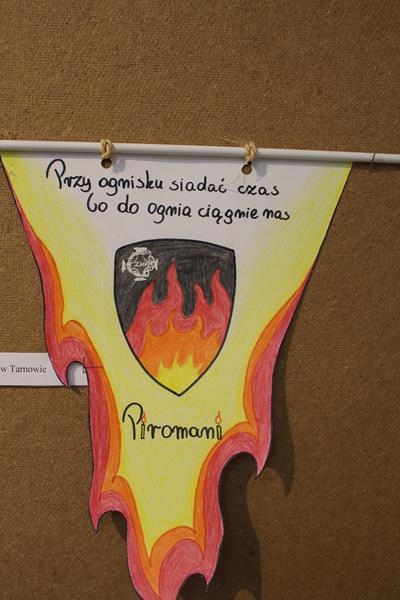 Przy ognisku siadać czas
bo do ognia ciągnie nas
ZHP
w Tarnowie
Piromani